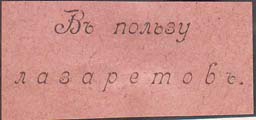 Въ пользу
лазаретовъ.